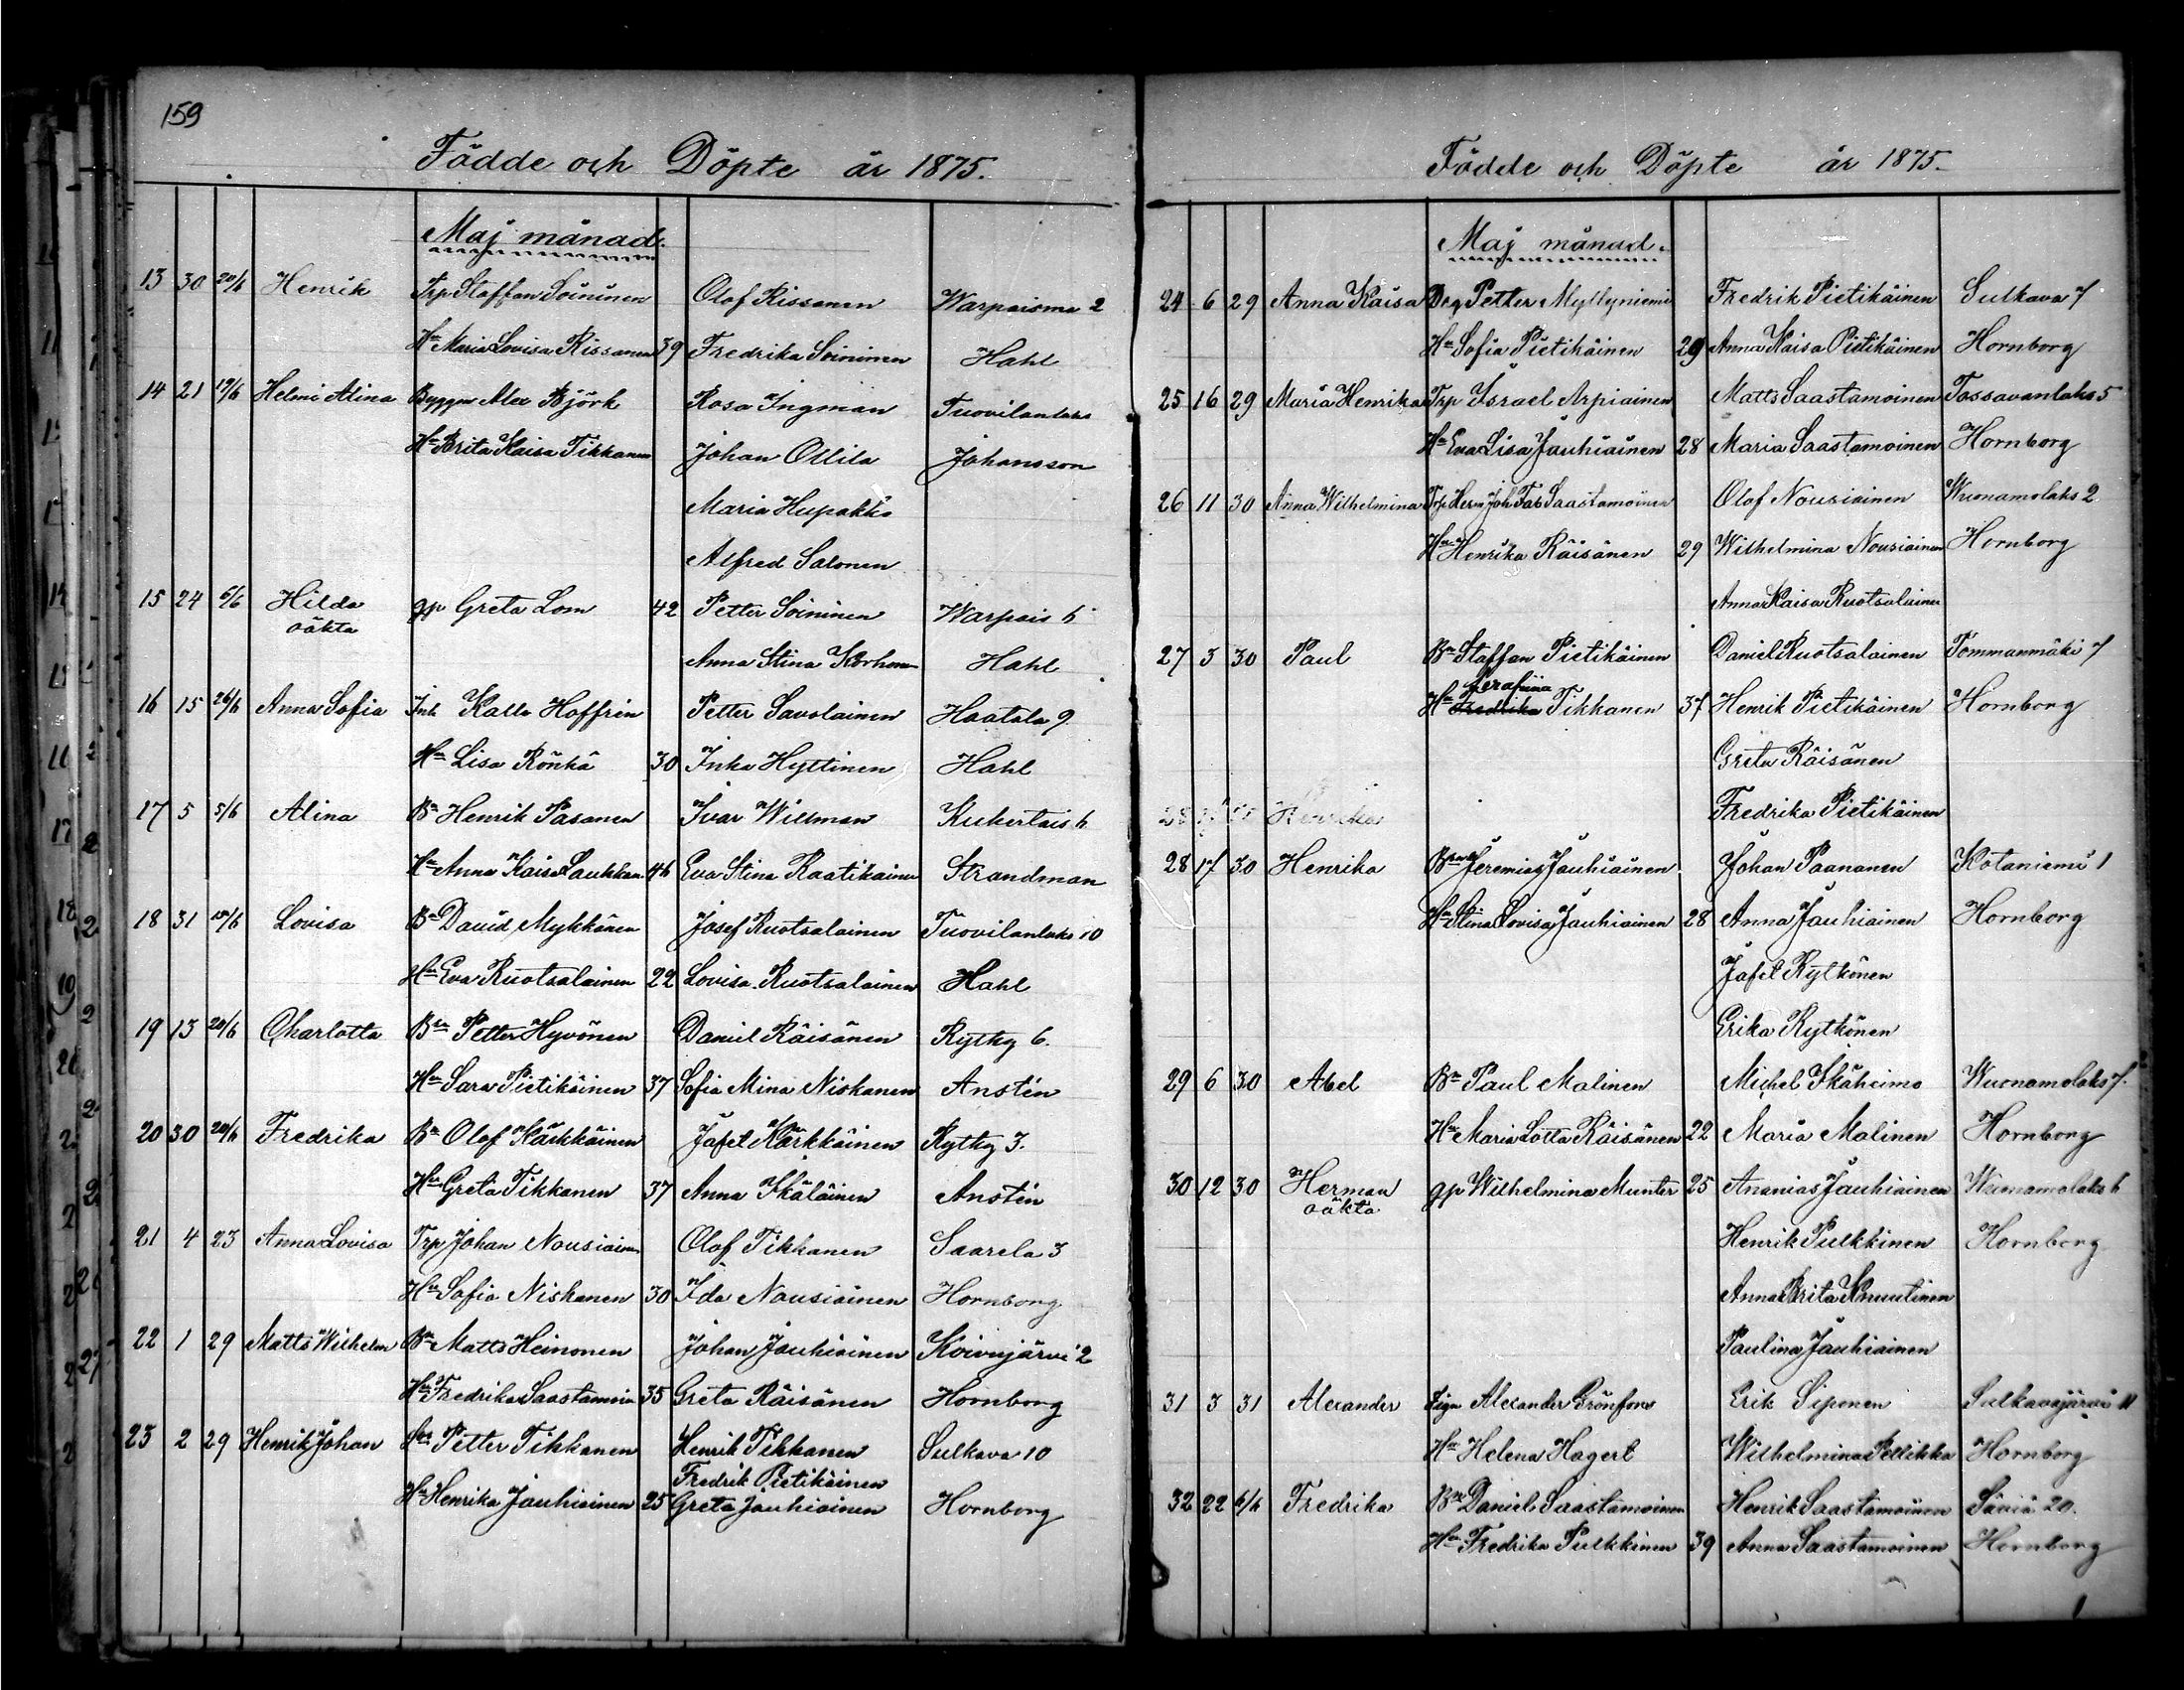 159
Födde och Döpte år 1875.
Maj månad.
13 30 20/6 Henrik Trp Staffan Soininen Olof Rissanen Warpaisma 2
Hu Maria Lovisa Rissanen 39 Fredrika Soininen Hahl
14 21 19/6 Helmi Alina Byggm Alex Björk Rosa Ingman Tuovilanlaks
Hu Brita Kaisa Tikkanen Johan Ollila Johansson
Maria Hupakko
Alfred Salonen
15 24 6/6 Hilda gp Greta Lom 42 Petter Soininen Warpais 6
oäkta Anna Stina Korhonen Hahl
16 15 26/6 Anna Sofia Inh Kalle Hoffrén Petter Savolainen Haatala 9
Hu Lisa Rönkä 30 Inka Hyttinen Hahl
17 5 5/6 Alina Bn Henrik Pasanen Ivar Willman Kukertais 6
Hu Anna Kaisa Laukkan 46 Eva Stina Raatikainen Strandman
18 31 19/6 Lovisa Bn David Mykkänen Josef Ruotsalainen Tuovilanlaks 10
Hu Eva Ruotsalainen 22 Lovisa Ruotsalainen Hahl
19 13 20/6 Charlotta Bn Petter Hyvönen Daniel Räisänen Rytky 6.
Hu Sara Pietikäinen 37 Sofia Mina Niskanen Anstén
20 30 20/6 Fredrika Bn Olof Kärkkäinen Jafet Kärkkäinen Rytky 3.
Hu Greta Tikkanen 37 Anna Ikäläinen Anstén
21 4 23 Anna Lovisa Trp Johan Nousiainen Olof Tikkanen Saarela 3
Hu Sofia Niskanen 30 Ida Nousiainen Hornborg
22 1 29 Matts Wilhelm Bn Matts Heinonen Johan Jauhiainen Koivujärvi 2
Hu Fredrika Saastamoin 35 Greta Räisänen Hornborg
23 2 29 Henrik Johan Petter Tikkanen Henrik Tikkanen Sulkava 10
Fredrik Pietikäinen
Hu Henrika Jauhiainen 25 Greta Jauhiainen Hornborg
Födde och Döpte år 1875.
Maj månad.
24 6 29 Anna Kaisa Drg Petter Myllyniemi Fredrik Pietikäinen Sulkava 7
Hu Sofia Pietikäinen 29 Anna Kaisa Pietikäinen Hornborg
25 16 29 Maria Henrika Trp Israel Arpiainen Matts Saastamoinen Tossavanlaks 5
Hu Eva Lisa Jauhiainen 28 Maria Saastamoinen Hornborg
26 11 30 Anna Wilhelmina Trp Herm Joh Fab Saastamoinen Olof Nousiainen Wuonamolaks 2
Hu Henrika Räisänen 29 Wilhelmina Nousiainen Hornborg
Anna Kaisa Ruotsalainen
27 3 30 Paul Bn Staffan Pietikäinen Daniel Ruotsalainen Tommanmäki 7
Serafiina
Hu Fredrika Tikkanen 37 Henrik Pietikäinen Hornborg
Greta Räisänen
Fredrika Pietikäinen
28 Henrika
28 17 30 Henrika Jeremias Jauhiainen Johan Paananen Kotaniemi 1
Hu Stina Lovisa Jauhiainen 28 Anna Jauhiainen Hornborg
Jafet Rytkönen
Erika Rytkönen
29 6 30 Abel Bn Paul Malinen Michel Ikäheimo Wuonamolaks 7.
Hu Maria Lotta Räisänen 22 Maria Malinen Hornborg
30 12 30 Herman gp Wilhelmina Munter 25 Ananias Jauhiainen Wuonamolaks 6
oäkta Henrik Pulkkinen Hornborg
Anna Brita Knuutinen
Paulina Jauhiainen
31 3 31 Alexander Alexander Grönfors Erik Siponen Sulkavajärvi 11
Hu Helena Hagert Wilhelmina Pellikka Hornborg
32 22 6/6 Fredrika Bn Daniel Saastamoinen Henrik Saastamoinen Säviä 20.
Hu Fredrika Pulkkinen 39 Anna Saastamoinen Hornborg